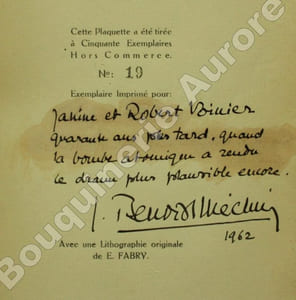 Cette Plaquette a été tirée
à Cinquante Exemplaires
Hors Commerce.
No: 19
Exemplaire Imprimé pour:
Janine et Robert
quarante ans plus tard, quand
la bombe atomique a rendu
le drame plus plausible encore.
J. Benoist-Méchin
1962
Avec une Lithographie originale
de E. FABRY.
Bouquinerie Aurore